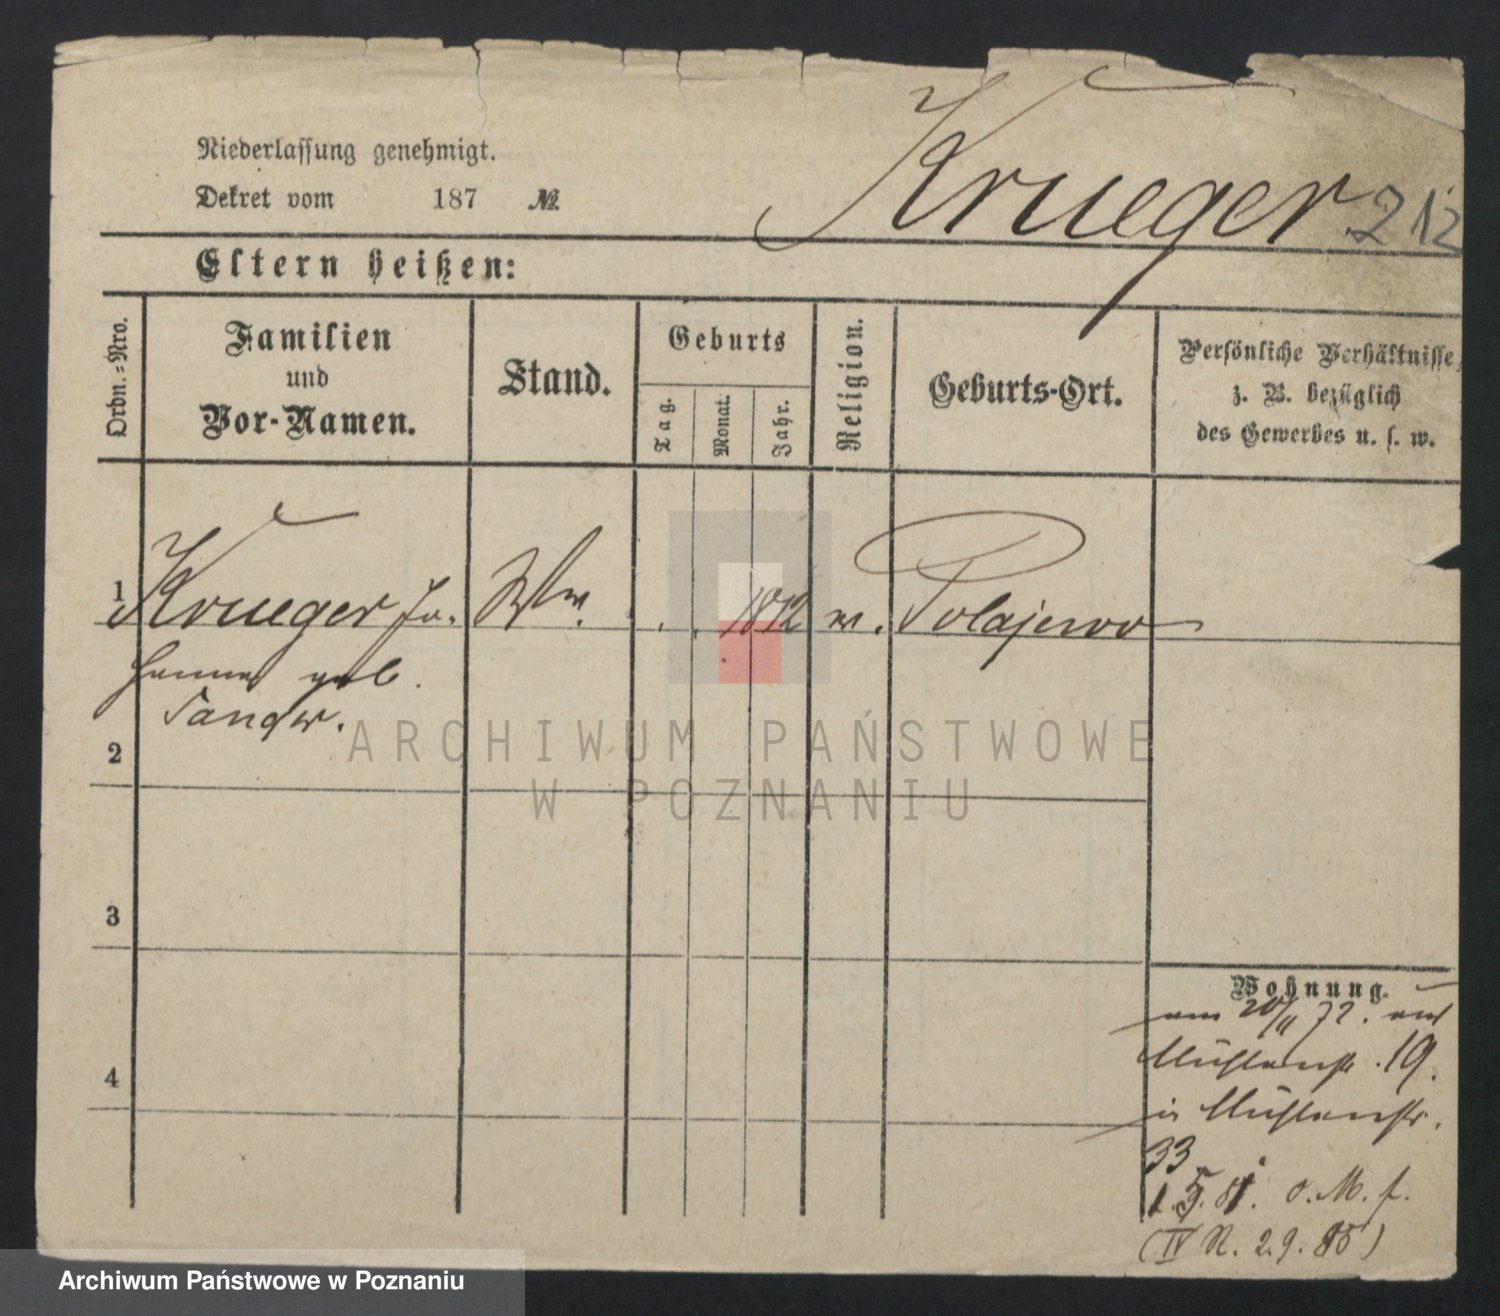 Niederlassung genehmigt.
Dekret vom 187 №
Krueger 212
Eltern heißen:
Ordn.=Nro.
Familien
und
Vor-Namen.
Stand.
Geburts
Tag.
Monat.
Jahr.
Religion.
Geburts-Ort.
Persönliche Verhältnisse
z. B. bezüglich
des Gewerbes u. s. w.
1 Krueger Jo- Ww. . . 1812 Polajewo
hanna geb.
2
3
4
ARCHIWUM PAŃSTWOWE
W POZNANIU
Wohnung.
am 20/11 72. auf
Mühlenstr. 19.
in Mühlenstr.
33
1. 5. 81. o. M. f.
(IV R. 2.9. 85)
Archiwum Państwowe w Poznaniu